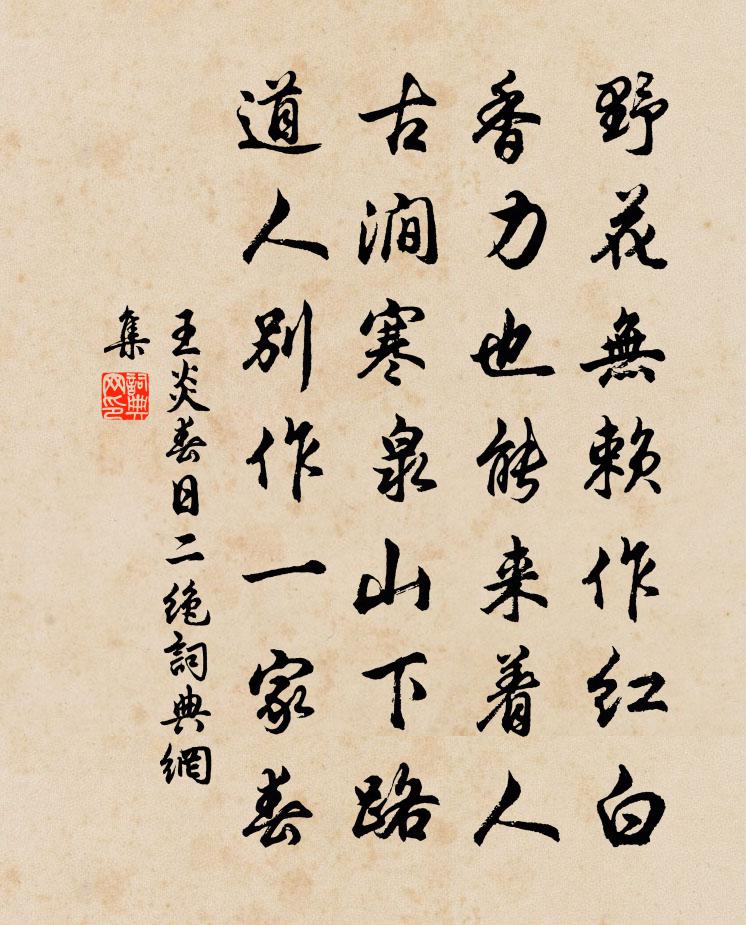 野花無賴作紅白
香力也能来着人
古澗寒泉山下路
道人別作一家春
王炎春日二绝詞典網
集
詞典
网印